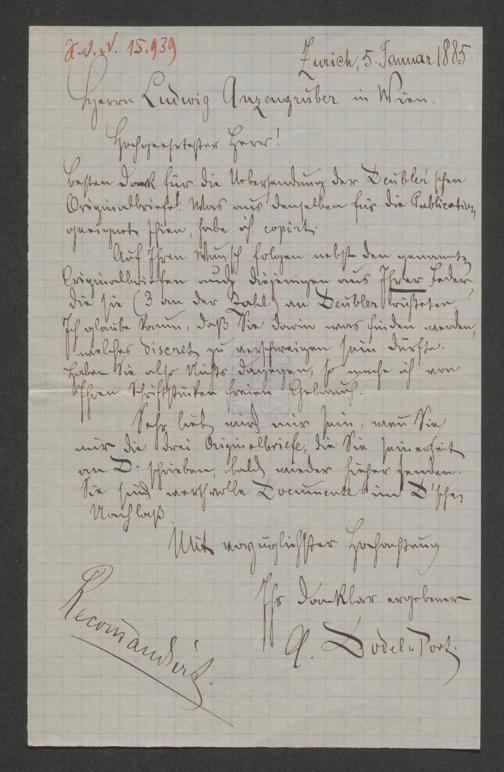 H.I.N. 15.939
Zürich, 5. Januar 1885
Herrn Ludwig Anzengruber in Wien.
Hochgeehrtester Herr!
Besten Dank für die Uebersendung der Deubler'schen
Originalbriefe. Was aus denselben für die Publication
geeignet schien, habe ich copirt.
Auf Ihren Wunsch folgen nebst den genannten
Originalbriefen auch diejenigen aus Ihrer Feder,
die sie (3 an der Zahl) an Deubler richteten.
Ich glaube kaum, daß Sie darin was finden werden,
welches discret zu verschweigen sein dürfte.
Haben Sie also Nichts dagegen, so mache ich von
Ihren Schriftstücken freien Gebrauch.
Sehr lieb wird mir sein, wenn Sie
mir die drei Originalbriefe, die Sie seinerzeit
an D. schrieben, bald wieder hieher senden.
Sie sind werthvolle Documente im D'schen
Nachlaß.
Mit vorzüglichster Hochachtung
Ihr dankbar ergebener
A. Dodel-Port.
Recomandirt.